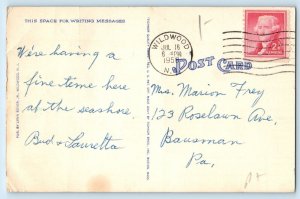 THIS SPACE FOR WRITING MESSAGES
WILDWOOD
JUL 16
6 PM
N.J.
POST CARD
2¢
We're having a
fine time here
at the seashore.
Bud & Lauretta
Mrs. Marion Frey
123 Roselawn Ave,
Bausman
Pa,